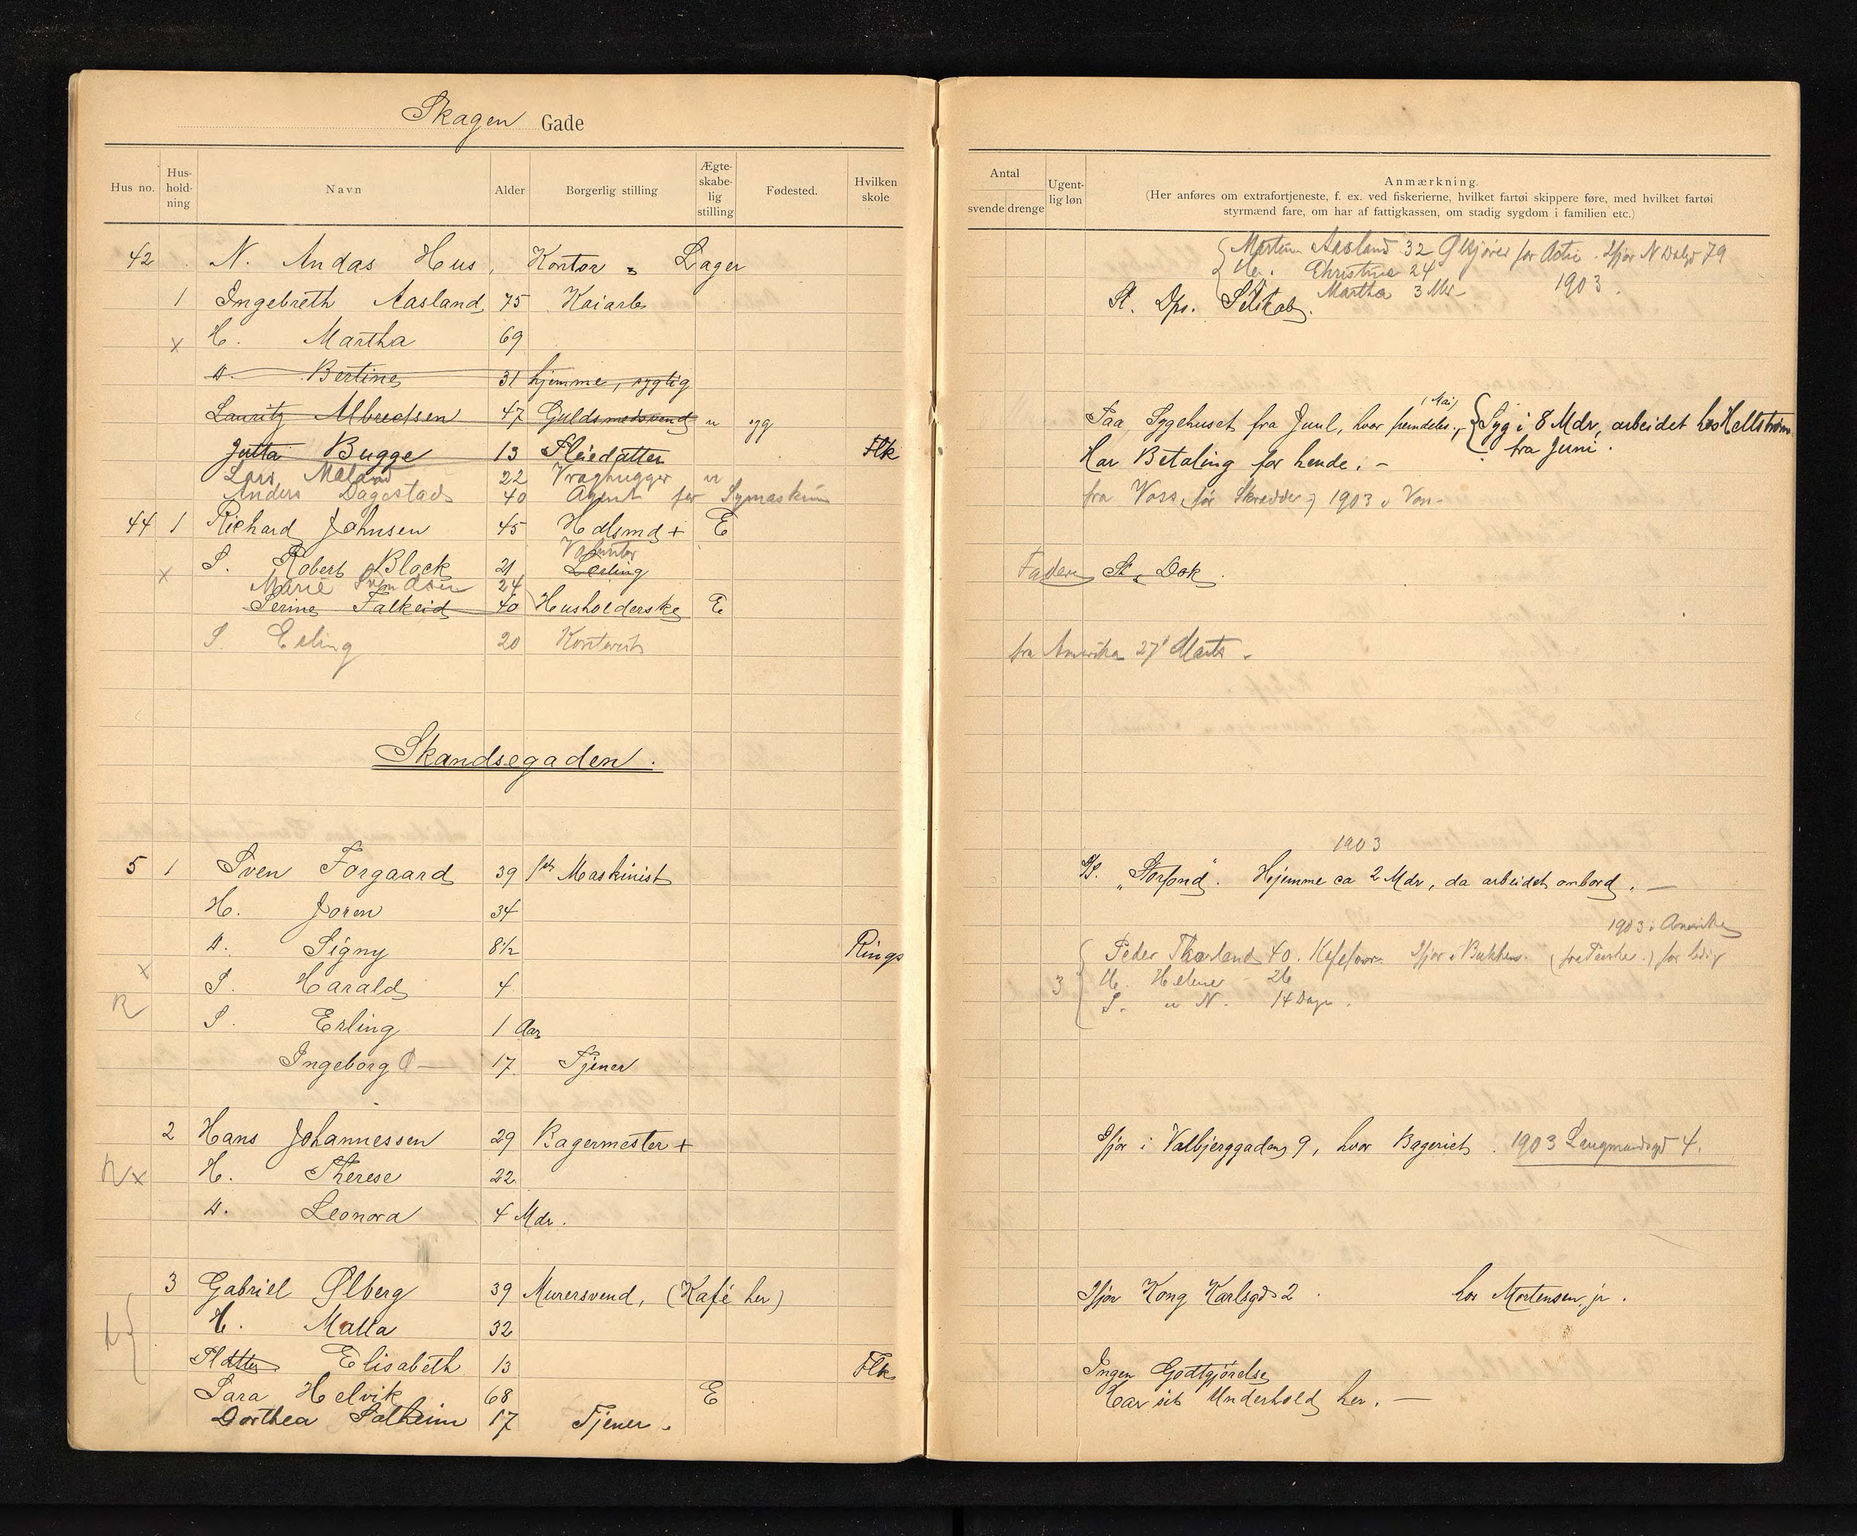 Skagen Gade
Hus no. Hus-hold-ning Navn Alder Borgerlig stilling Ægte-skabe-lig stilling Fødested. Hvilken skole
42 N. Andas Hus, Kontor & Lager
1 Ingebreth Aasland 75 Kaiarb
x H. Martha 69
D. Bertine 31 hjemme, sygelig
Lauritz Albrectsen 47 Guldsmedsvend u gg
Jutta Bugge 13 Pleiedatter Flk
Lars 22 Vraghugger u
Anders Dagestad 40 Agent for Symaskin
44 1 Richard Johnsen 45 Hdlsmd + E
Volontør
x S. Robert Block 21 Lærling
Marie Svendsen 24
Serine Falkeid 40 Husholderske E
S. Erling 20 Kontorist
Skandsegaden.
5 1 Sven Forgaard 39 1ste Maskinist
H. Joren 34
D. Signy 8½ Rings
x S. Harald 4
R S. Erling 1 Aar
Ingeborg O— 17 Tjener
2 Hans Johannessen 29 Bagermester +
x H. Therese 22
D. Leonora 4 Mdr.
3 Gabriel Ølberg 39 Murersvend, (Kafé her)
H. Malla 32
Pldatter Elisabeth 13 Flk
Sara Helvik 68 E
Dorthea Solheim 17 Tjener.
Antal svende drenge Ugent-lig løn
Anmærkning.
(Her anføres om extrafortjeneste, f. ex. ved fiskerierne, hvilket fartøi skippere føre, med hvilket fartøi
styrmænd fare, om har af fattigkassen, om stadig sygdom i familien etc.)
Morten Aasland 32 Ifjor N Dalgd 79
Christine 24
Martha 3 Mdr 1903.
St. Dps. Selskab.
(Mai)
Paa Sygehuset fra Juul, hvor fremdeles, { Syg i 8 Mdr, arbeidet hos Hellstrøm
fra Juni.
Har Betaling for hende. -
fra Voss, før Skrædder 1903 Voss -
Faderen St. Dok.
fra Amerika 27/ Marts -
1903
S/S. "Storfond". Hjemme ca 2 Mdr, da arbeidet ombord. —
1903 i Amerika
Peder Thorland 40. Ifjor
3 H. Helene 26
S. u N. 14 Dage.
Ifjor i Valbjerggaden 9, hvor Bageriet. 1903 Langmandsgd 4.
Ifjor Kong Karlsgd 2. hos Mortensen jr.
Ingen Godtgjørelse
Har sit Underhold her. —